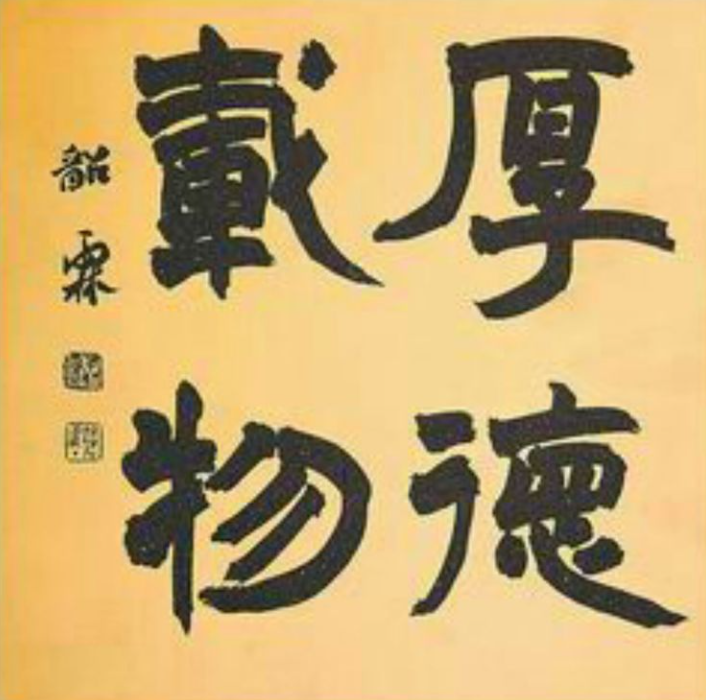 厚德
載物
韶霖